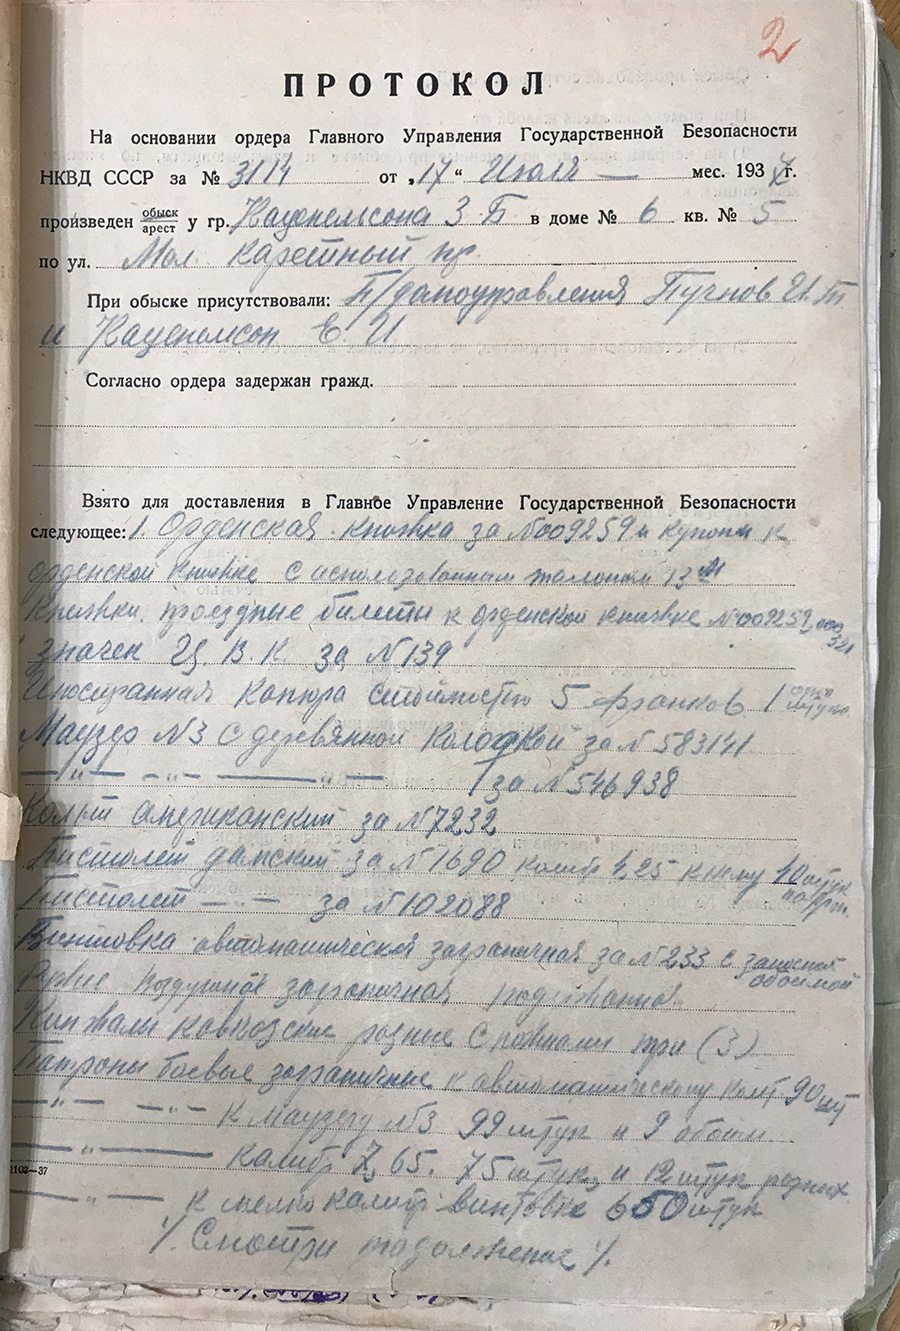 2
ПРОТОКОЛ
На основании ордера Главного Управления Государственной Безопасности
НКВД СССР за № 3114 от „17“ Июля — мес. 1937г.
произведен обыск арест у гр. Каценельсона З Б в доме № 6 кв. № 5
по ул. Мал. Каретный пр.
При обыске присутствовали: П/домоуправления Пучков
и Каценельсон Е. И
Согласно ордера задержан гражд.
Взято для доставления в Главное Управление Государственной Безопасности
следующее: 1. Орденская книжка за №009259 и купоны к
орденской книжке с использованным талоном 13
Книжки проездные билеты к орденской книжке №009259
значек Ц. В. К. за №139
Иностранная купюра стоимостью 5 франков 1 штука
Маузер №3 с деревянной колодкой за №583141
— „ — — „ — — „ — за №546938
Кольт американский за №7232
Пистолет дамский за №1690 калибр к нему 10 штук патрон.
Пистолет — „ — за №102088
Винтовка автоматическая заграничная за №233 с запасной обоймой
Ружие воздушное заграничная
Кинжалы кавказские разные с ножнами три (3)
Патроны боевые заграничные к автоматическому кольт 90 шт
— „ — — „ — к Маузеру №3 99 штук и 9 обойм
— „ — калибр 7,65. 75 штук и 12 штук разных
2103—37
— „ — к мелкокалибр винтовке 650 штук
/. Смотри продолжение /.